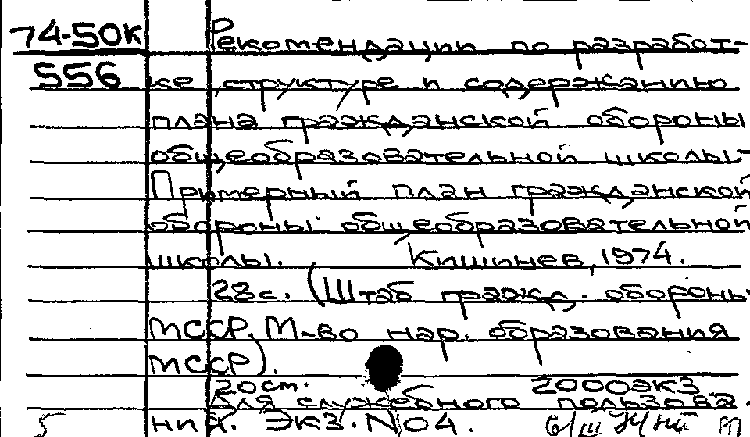 74-50к Рекомендации по разработ-
556 ке, структуре и содержанию
плана гражданской обороны
общеобразовательной школы.-
Примерный план гражданской
обороны общеобразовательной
школы. Кишинев, 1974.
28с. (Штаб гражд. обороны
МССР. М-во нар. образования
МССР).
20см. 2000экз
Для служебного пользова-
5 ния. Экз. N04.